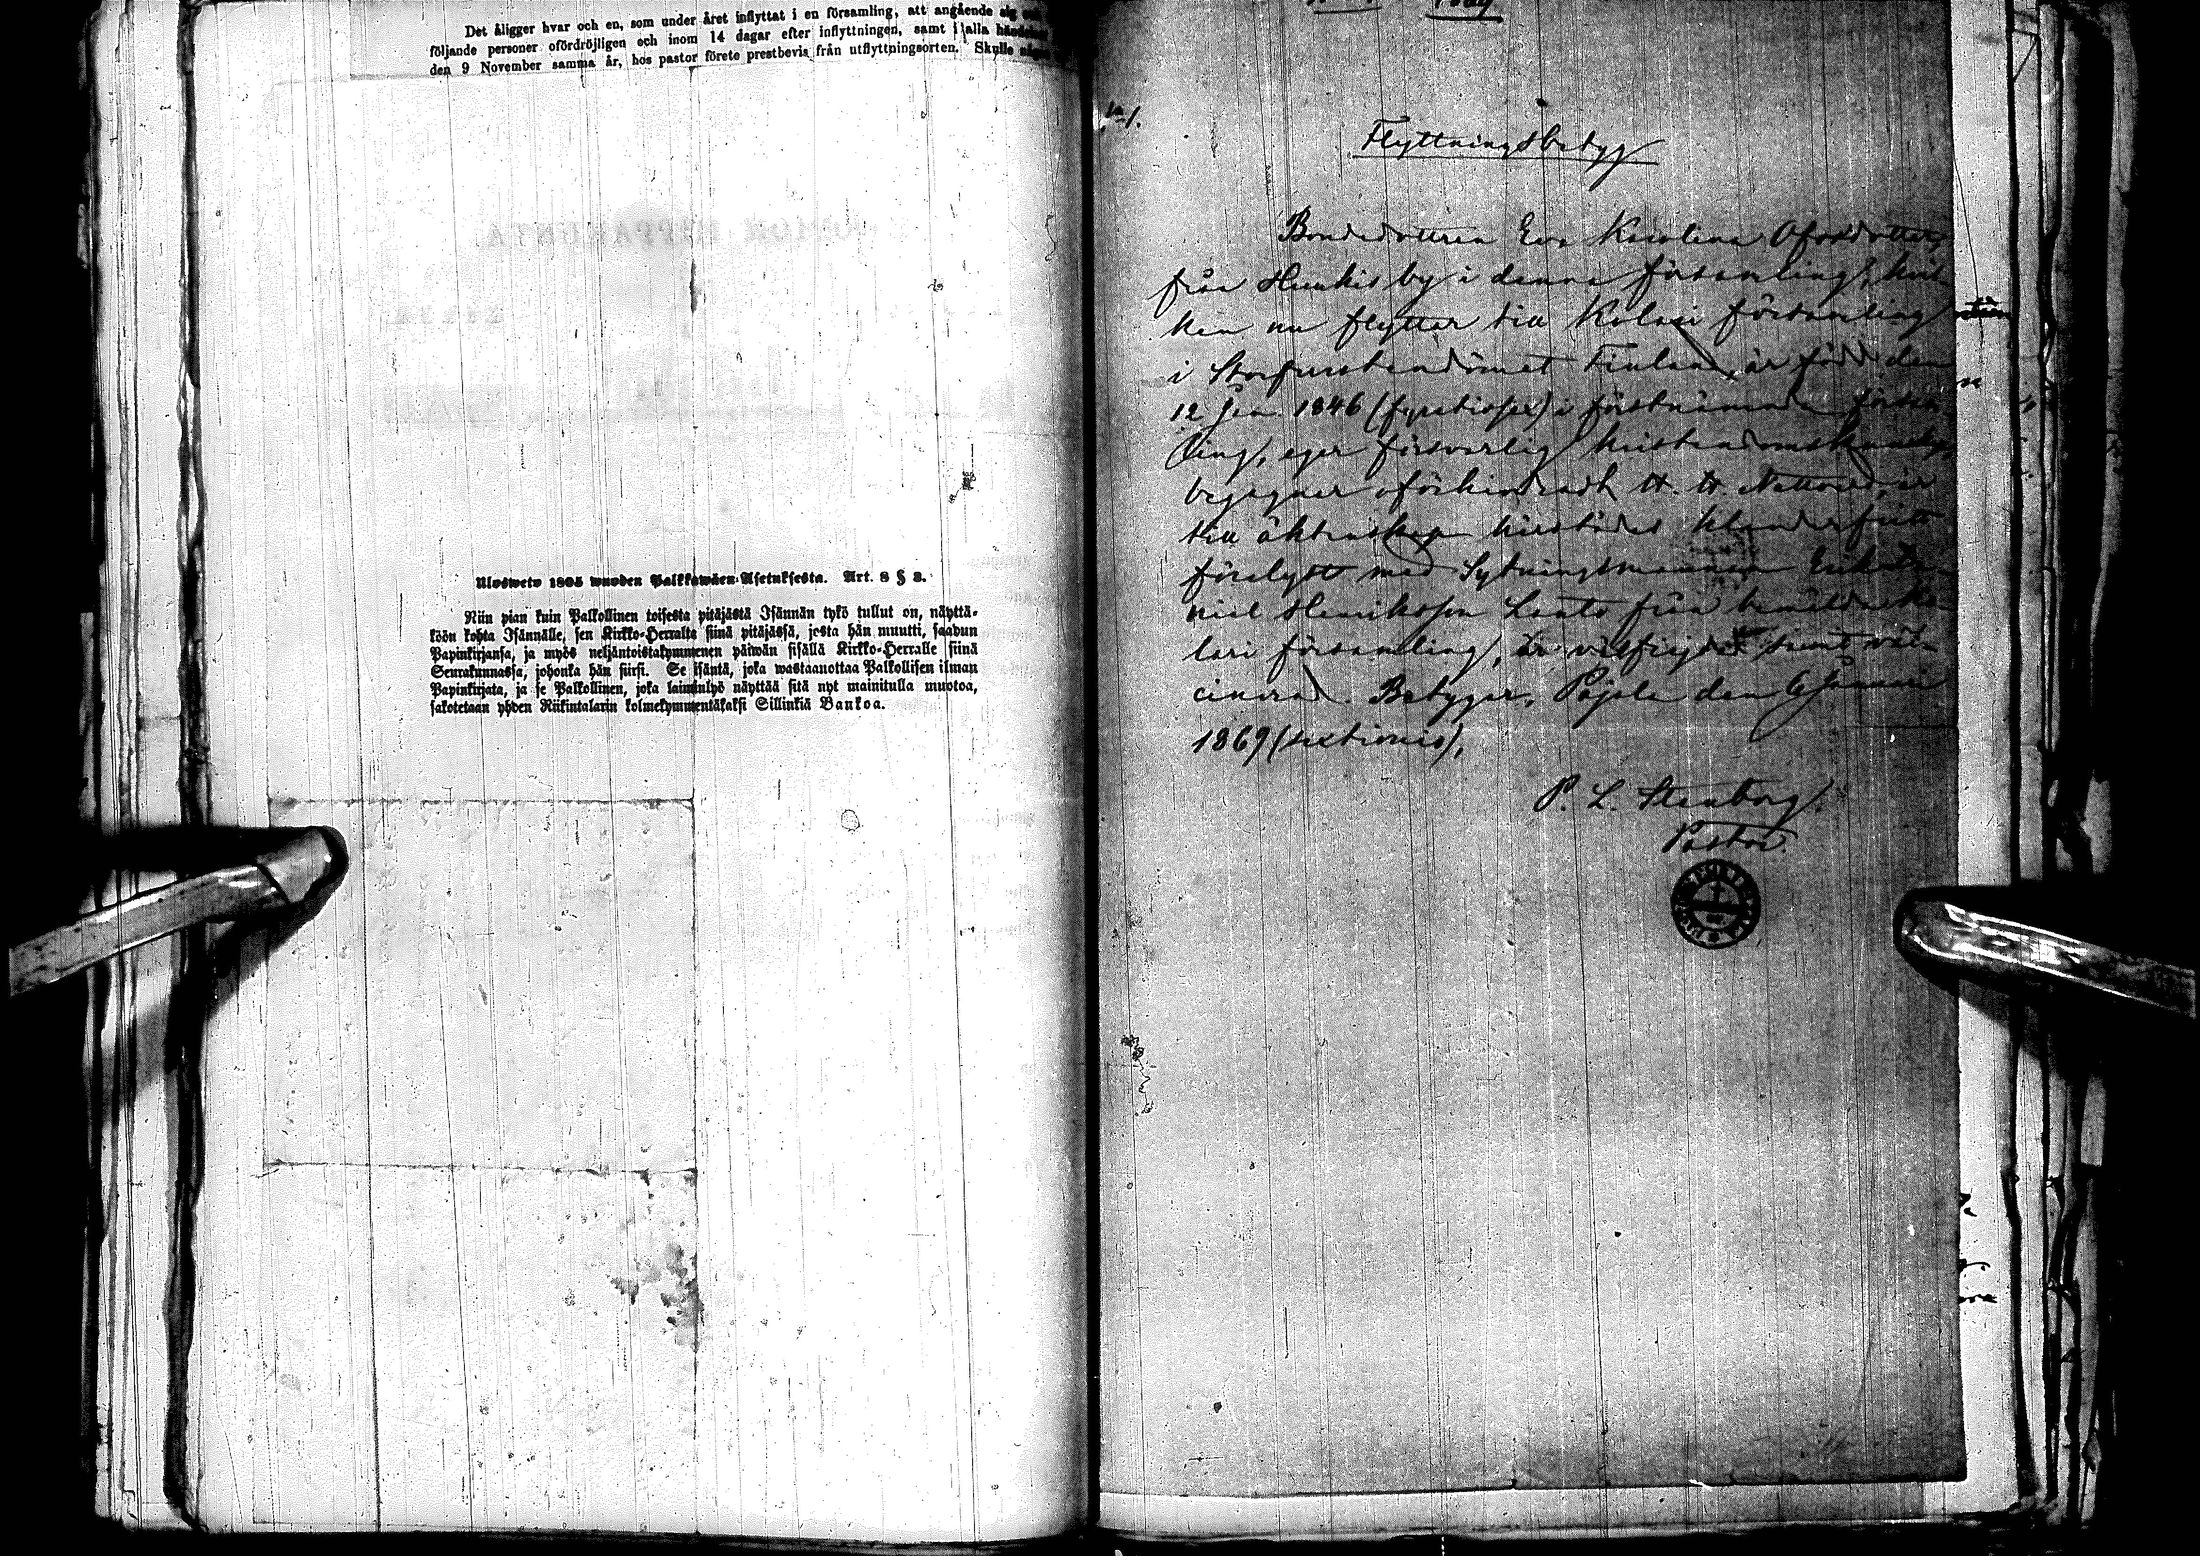 Det åligger hvar och en, som under året inflyttat i en församling, att angående sig och
följande personer ofördröjligen och inom 14 dagar efter inflyttningen, samt i alla händelser
den 9 November samma år, hos pastor förete prestbevis från utflyttningsorten. Skulle någon
Ulosweto 1805 wuoden Palkkawäen-Asetuksesta. Art. 8 § 3.
Niin pian kuin Palkollinen toisesta pitäjästä Isännän tykö tullut on, näyttä-
köön kohta Isännälle, sen Kirkko-Herralta siinä pitäjässä, josta hän muutti, saadun
Papinkirjansa, ja myös neljäntoistakymmenen päiwän sisällä Kirkko-Herralle siinä
Seurakunnassa, johonka hän siirsi. Se isäntä, joka wastaanottaa Palkollisen ilman
Papinkirjata, ja se Palkollinen, joka laiminlyö näyttää sitä nyt mainitulla muotoa,
sakotetaan yhden Riikintalarin kolmekymmentäkaksi Sillinkiä Bankoa.
N 1.
Flyttningsbetyg
Bondedottren Eva Karolina Olofsdotter
från Huukis by i denna församling, hvil-
ken nu flyttar till Kolari församling
i Storfurstendömet Finland, är född den
12 Jan 1846 (fyratiosex) i förstnämnda försam-
ling, eger försvarlig kristendomskunskap,
begagnar oförhindradt H. H. Nattvard, är
till äktenskap härstädes klanderfritt
förelyst med Sytningsmannen Erik Da-
niel Henriksson Lanto från bemälda Ko-
lari församling, är välfrejdad samt vac-
cinerad. Betygar, Pajala den 6 Januari
1869 (sextionio),
P. L. Stenborg
Pastor.